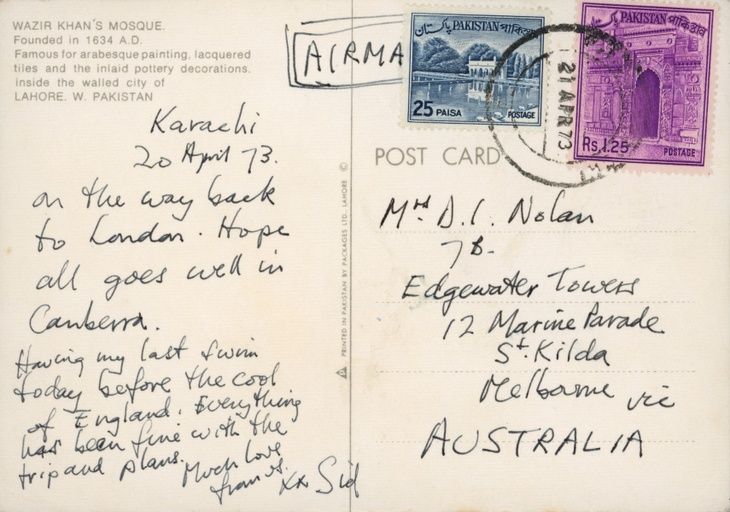 WAZIR KHAN'S MOSQUE.
Founded in 1634 A.D.
Famous for arabesque painting, lacquered
tiles and the inlaid pottery decorations.
inside the walled city of
LAHORE. W. PAKISTAN
Karachi
20 April 73.
on the way back
to London. Hope
all goes well in
Canberra.
Having my last swim
today before the cool
of England. Everything
has been fine with the
trip and plans.
Much love
from us.
xx Sid
PRINTED IN PAKISTAN BY PACKAGES LTD. LAHORE ©
AIRMA
پاکستان PAKISTAN পাকিস্তান
25 PAISA POSTAGE
21 APR 73
پاکستان PAKISTAN পাকিস্তান
Rs.1.25 POSTAGE
POST CARD
Mrs D.I. Nolan
7B.
Edgewater Towers
12 Marine Parade
St. Kilda
Melbourne vic
AUSTRALIA